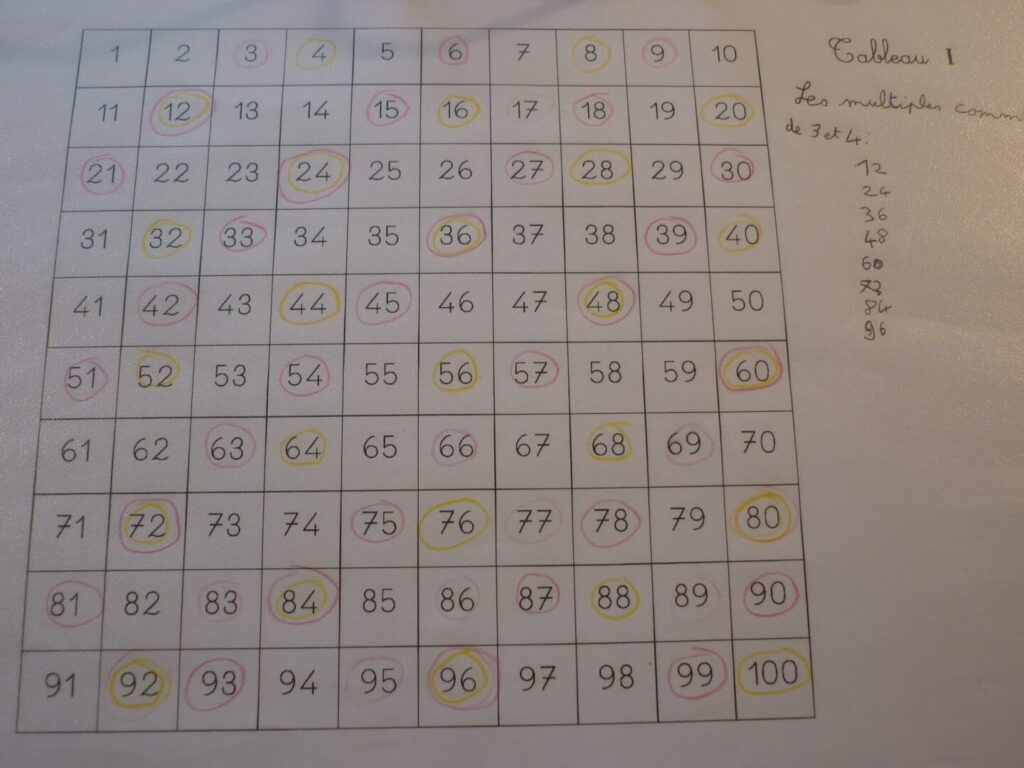 1 2 3 4 5 6 7 8 9 10
11 12 13 14 15 16 17 18 19 20
21 22 23 24 25 26 27 28 29 30
31 32 33 34 35 36 37 38 39 40
41 42 43 44 45 46 47 48 49 50
51 52 53 54 55 56 57 58 59 60
61 62 63 64 65 66 67 68 69 70
71 72 73 74 75 76 77 78 79 80
81 82 83 84 85 86 87 88 89 90
91 92 93 94 95 96 97 98 99 100
Tableau I
Les multiples comm
de 3 et 4:
12
24
36
48
60
72
84
96